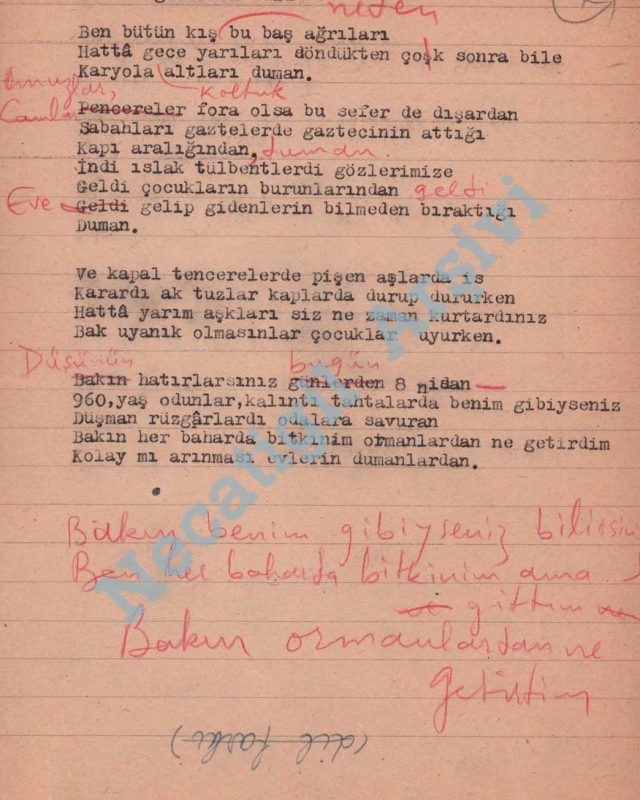 neden
Ben bütün kış bu baş ağrıları
Hattâ gece yarıları döndükten çok sonra bile
Karyola altları duman.
koltuk
Pencereler fora olsa bu sefer de dışardan
Sabahları gaztelerde gaztecinin attığı
Kapı aralığından, duman.
İndi ıslak tülbentlerdi gözlerimize
Geldi çocukların burunlarından geldi
Eve Geldi gelip gidenlerin bilmeden bıraktığı
Duman.
Ve kapal tencerelerde pişen aşlarda is
Karardı ak tuzlar kaplarda durup dururken
Hattâ yarım aşkları siz ne zaman kurtardınız
Bak uyanık olmasınlar çocuklar uyurken.
Düşünün bugün
Bakın hatırlarsınız günlerden 8 nisan
960,yaş odunlar,kalıntı tahtalarda benim gibiyseniz
Düşman rüzgârlardı odalara savuran
Bakın her baharda bitkinim otmanlardan ne getirdim
Kolay mı arınması evlerin dumanlardan.
Bakın benim gibiyseniz
Ben her baharda bitkinim ama
gittim
Bakın ormanlardan ne
getirdim
(dil farkı)
Necatigil Arşivi